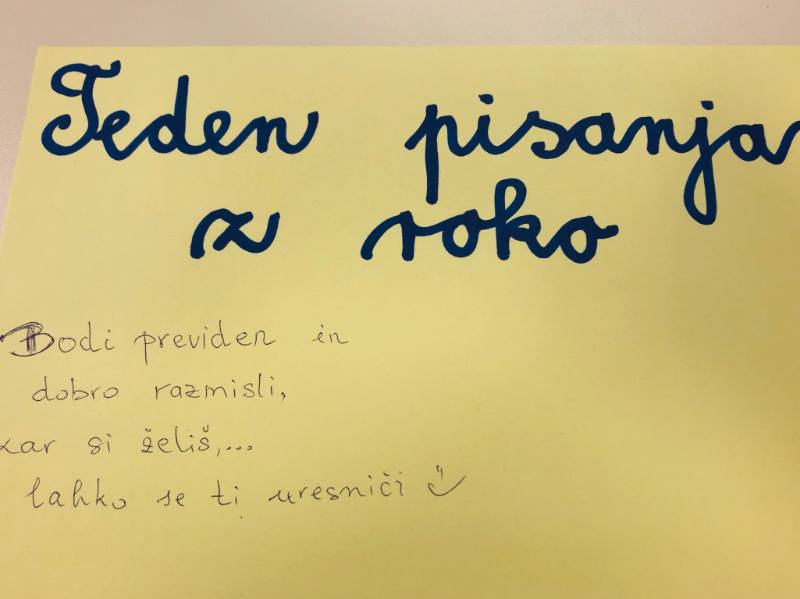 Teden pisanja
z roko
Bodi previden in
dobro razmisli,
kar si želiš,...
lahko se ti uresniči